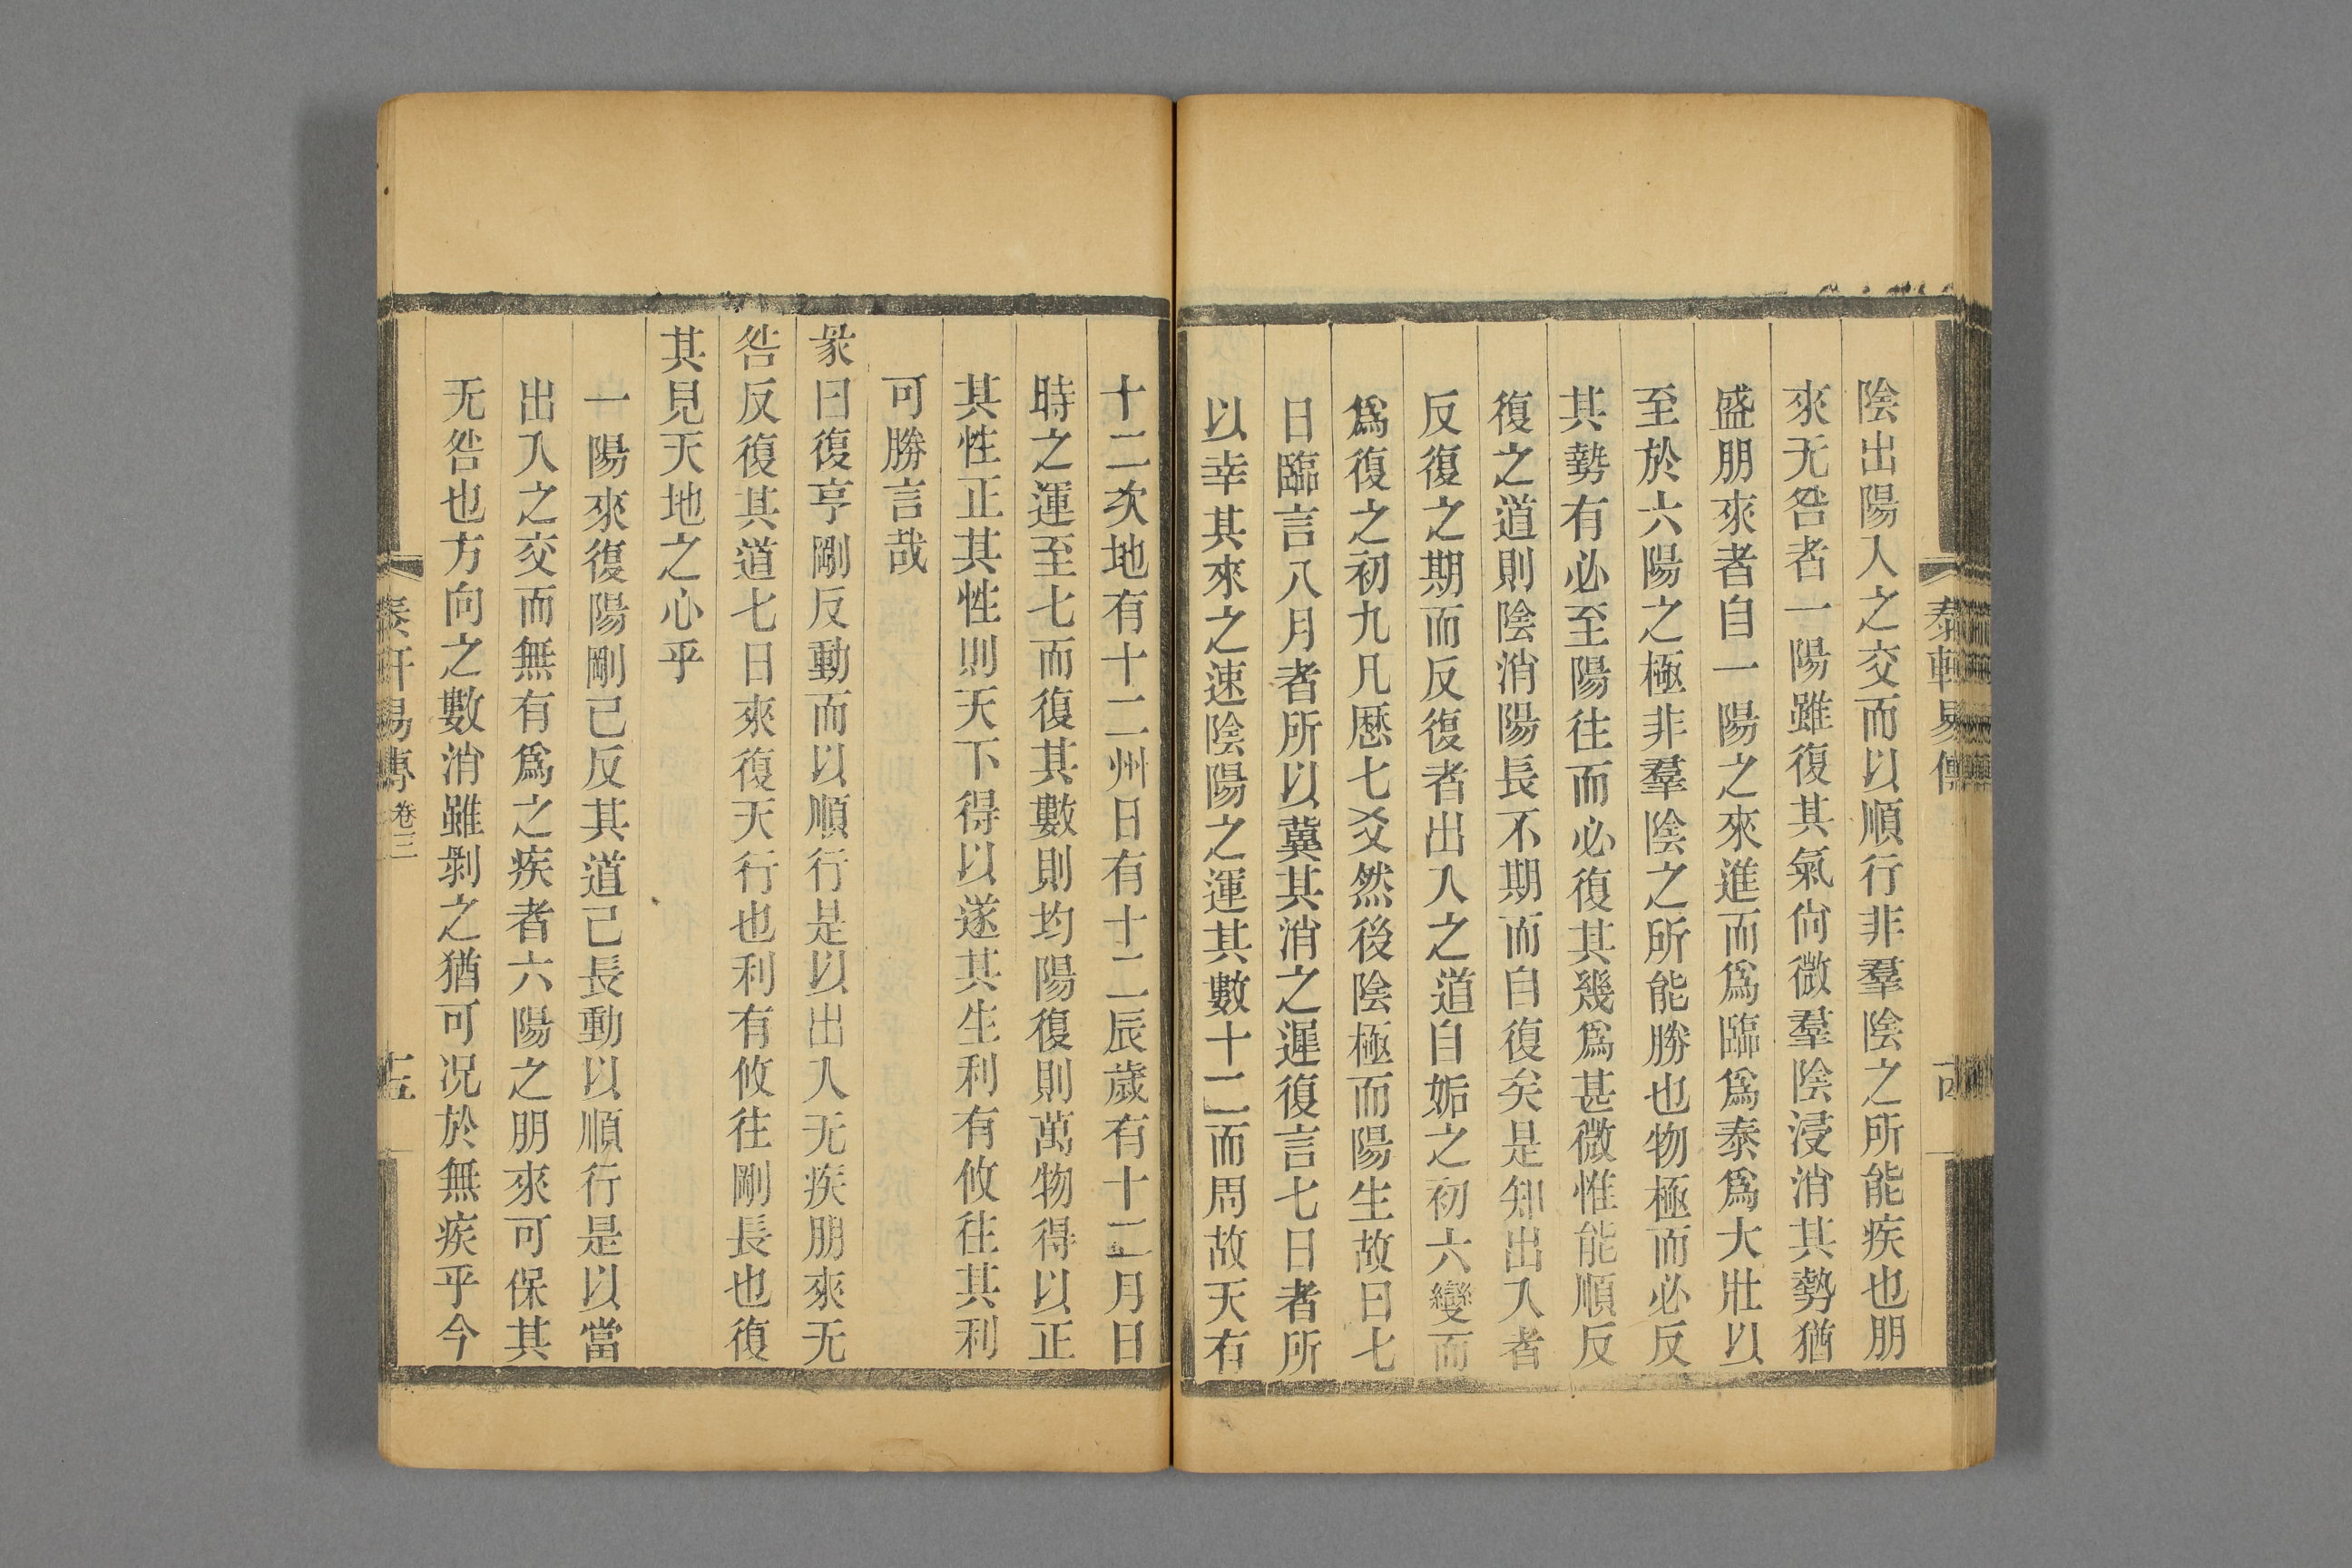 泰軒易傳
陰出陽入之交而以順行非羣陰之所能疾也朋
來无咎者一陽雖復其氣尙微羣陰浸消其勢猶
盛朋來者自一陽之來進而爲臨爲泰爲大壯以
至於六陽之極非羣陰之所能勝也物極而必反
其勢有必至陽往而必復其幾爲甚微惟能順反
復之道則陰消陽長不期而自復矣是知出入者
反復之期而反復者出入之道自姤之初六變而
爲復之初九凡歷七爻然後陰極而陽生故曰七
日臨言八月者所以冀其消之遲復言七日者所
以幸其來之速陰陽之運其數十二而周故天有
十二次地有十二州日有十二辰歲有十二月日
時之運至七而復其數則均陽復則萬物得以正
其性正其性則天下得以遂其生利有攸往其利
可勝言哉
彖曰復亨剛反動而以順行是以出入无疾朋來无
咎反復其道七日來復天行也利有攸往剛長也復
其見天地之心乎
一陽來復陽剛已反其道已長動以順行是以當
出入之交而無有爲之疾者六陽之朋來可保其
无咎也方向之數消雖剝之猶可况於無疾乎今
泰軒易傳 卷三 十五